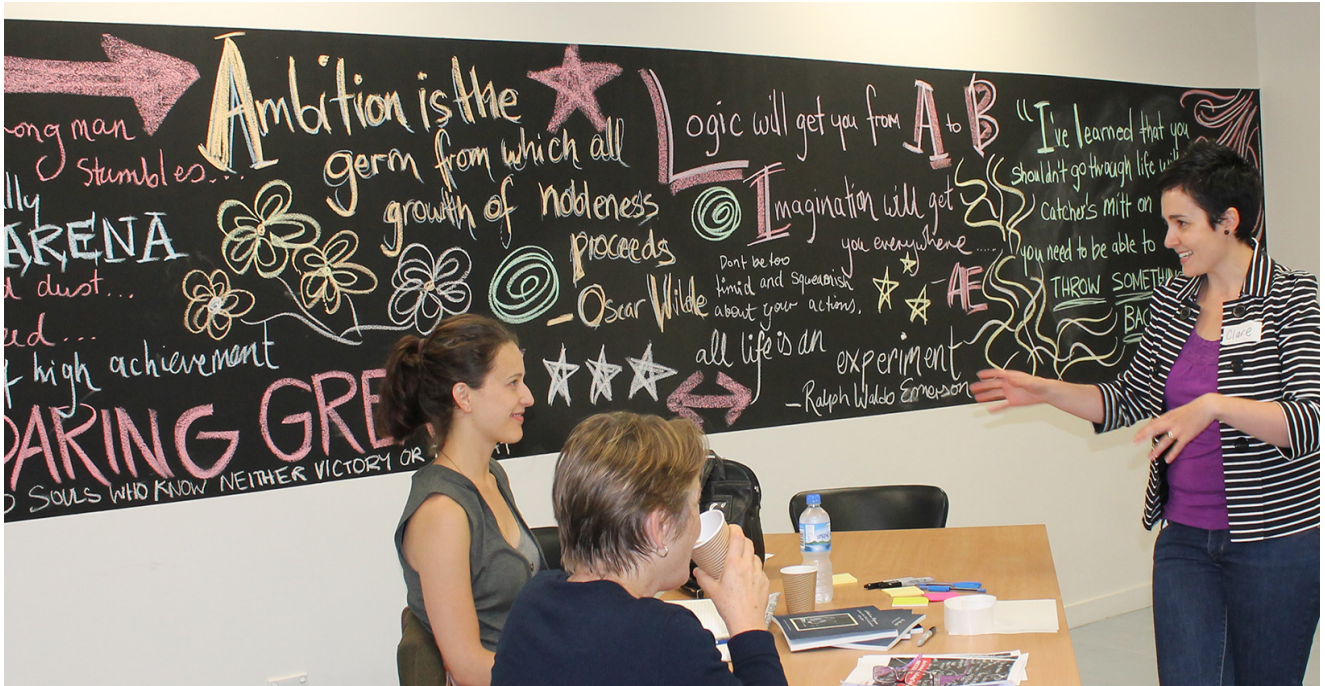 ong man
Stumbles...
lly
ARENA
d dust...
ed...
f high achievement
DARING GRE
SOULS WHO KNOW NEITHER VICTORY OR
Ambition is the
germ from which all
growth of nobleness
proceeds
- Oscar Wilde
Logic will get you from A to B
Imagination will get
you everywhere.....
AE
Dont be too
timid and squeamish
about your actions.
all life is an
experiment
- Ralph Waldo Emerson
"I've learned that you
shouldn't go through life
catcher's mitt on
you need to be able to
THROW SOMETHING
BAC
Clare